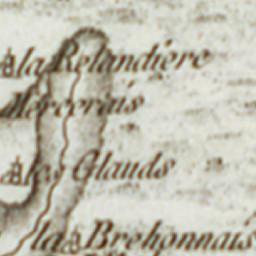 la Relandiere
Mercerais
les Glauds
la Brehonnais